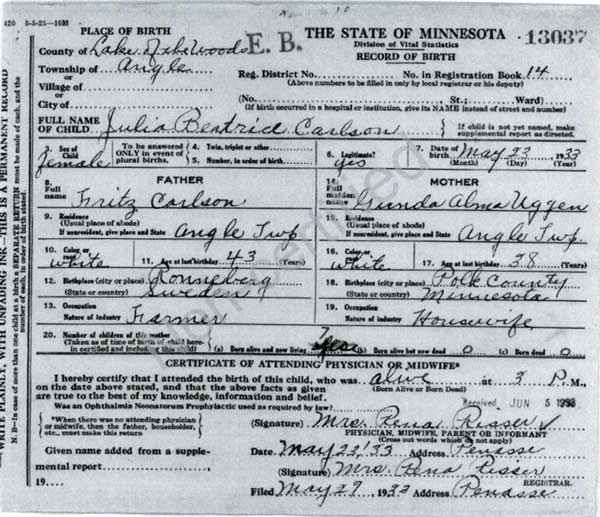 420 5-5-25-10M
PLACE OF BIRTH
THE STATE OF MINNESOTA
13037
County of Lake of the Woods E. B.
Division of Vital Statistics
RECORD OF BIRTH
Township of Angle
or
Village of
or
City of
Reg. District No. No. in Registration Book 14
(Above numbers to be filled in only by local registrar or his deputy)
(No. St.; Ward)
(If birth occurred in a hospital or institution, give its NAME instead of street and number)
FULL NAME OF CHILD Julia Beatrice Carlson
If child is not yet named, make supplemental report as directed.
3. Sex of Child female
To be answered ONLY in event of plural births.
4. Twin, triplet or other
5. Number, in order of birth
6. Legitimate? yes
7. Date of birth May 23 1933
(Month) (Day) (Year)
FATHER
8. Full name Fritz Carlson
9. Residence
(Usual place of abode)
If nonresident, give place and State Angle Twp
10. Color or race white
11. Age at last birthday 43 (Years)
12. Birthplace (city or place) Ronneberg
(State or country) Sweden
13. Occupation
Nature of industry Farmer
MOTHER
14. Full maiden name Gunda Alma Uggen
15. Residence
(Usual place of abode)
If nonresident, give place and State Angle Twp.
16. Color or race white
17. Age at last birthday 38 (Years)
18. Birthplace (city or place) Polk County
(State or country) Minnesota
19. Occupation
Nature of industry Housewife
20. Number of children of this mother
(Taken as of time of birth of child herein certified and including this child)
(a) Born alive and now living 7
(b) Born alive but now dead 0
(c) Born dead 0
CERTIFICATE OF ATTENDING PHYSICIAN OR MIDWIFE*
I hereby certify that I attended the birth of this child, who was alive at 3 P.M.,
(Born Alive or Born Dead)
on the date above stated, and that the above facts as given
are true to the best of my knowledge, information and belief.
Received JUN 5 1933
Was an Ophthalmia Neonatorum Prophylactic used as required by law?
*When there was no attending physician
or midwife, then the father, householder,
etc., must make this return
(Signature) Mrs. Rena Risser
PHYSICIAN, MIDWIFE, PARENT OR INFORMANT
(Cross out words which do not apply)
Date May 23/33 Address Penasse
Given name added from a supplemental report
19
(Signature) Mrs. Rena Risser
REGISTRAR.
Filed May 29, 1933 Address Penasse
WRITE PLAINLY, WITH UNFADING INK—THIS IS A PERMANENT RECORD
N. B.—In case of more than one child at a birth SEPARATE RETURN must be made of each, and the number of each, in order of birth stated.